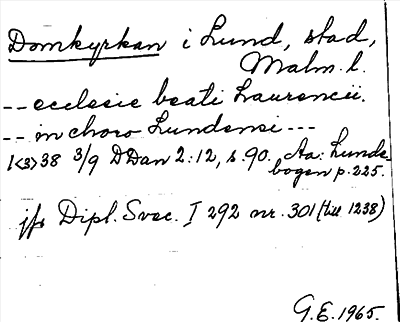 Domkyrkan i Lund, stad,
Malm. l.
-- ecclesie beati Laurencii.
-- in choro Lundensi ---
1<3>38 3/9 DDan 2:12, s. 90. Aa: Lunde-
bogen p. 225.
jfr Dipl. Svec. I 292 nr. 301 (till 1238)
G.E. 1965.